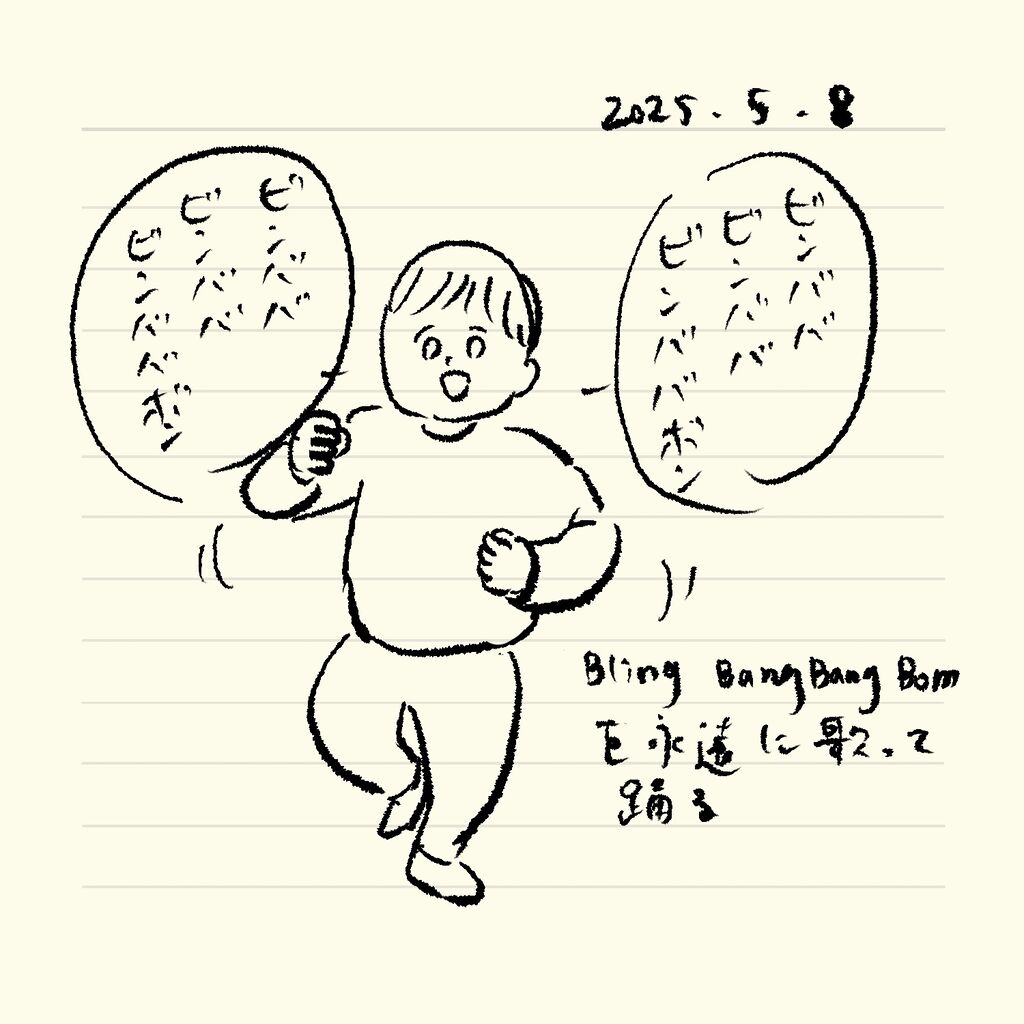 2025.5.8
ビンババ
ビンババ
ビンババボン
ビンババ
ビンババ
ビンババボン
Bling BangBang Bom
を永遠に歌って
踊る